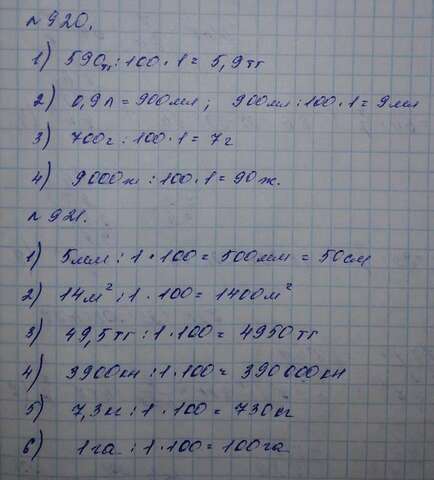 №920.
1) 590тг : 100 · 1 = 5,9тг
2) 0,9л = 900мл ; 900мл : 100 · 1 = 9мл
3) 700г : 100 · 1 = 7г
4) 9000ж : 100 · 1 = 90ж.
№921.
1) 5мм : 1 · 100 = 500мм = 50см
2) 14м² : 1 · 100 = 1400м²
3) 49,5тг : 1 · 100 = 4950тг
4) 3900кн : 1 · 100 = 390000кн
5) 7,3кг : 1 · 100 = 730кг
6) 1га : 1 · 100 = 100га